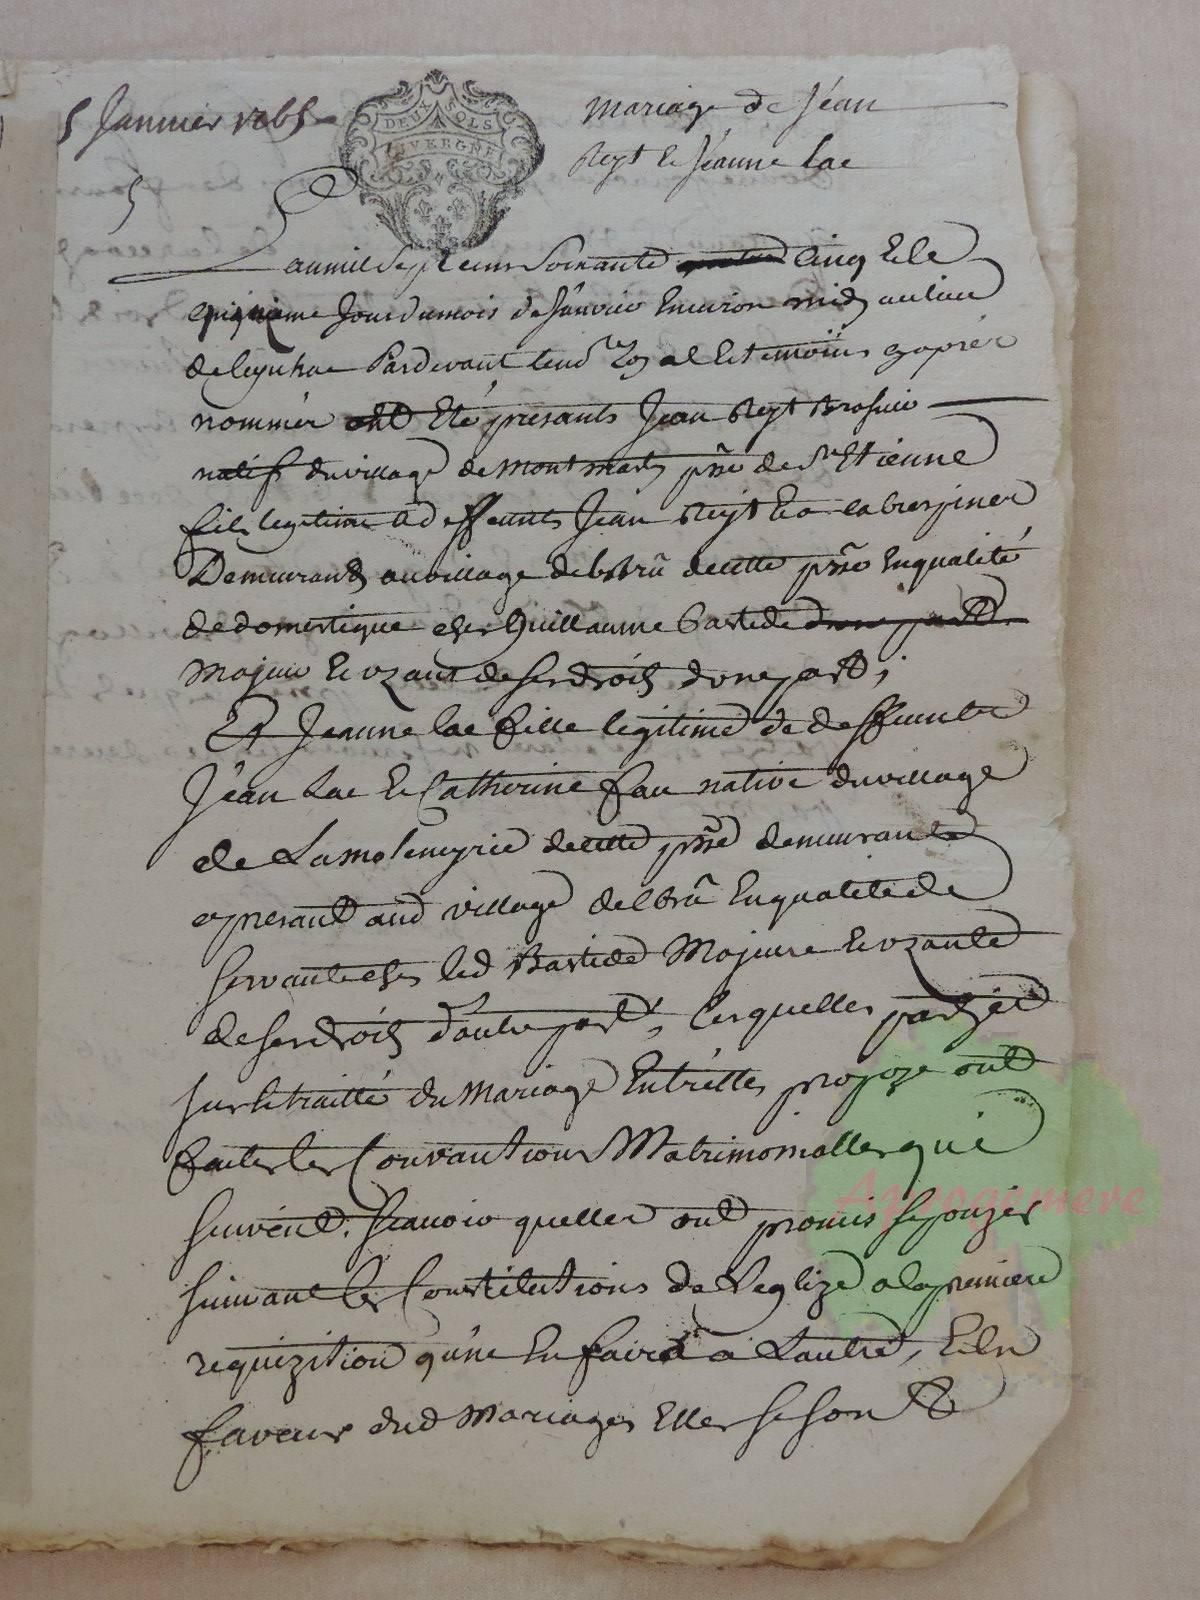 5 Janvier 1765
DEUX SOLS
AUVERGNE
mariage de Jéan
Reyt et Jéanne Lac
5
Lan mil Sept cens Soixante cinq Et le
jour du mois de Janvier Environ midy au lieu
de Pardevant Et temoins ez aprés
nommés Eté présants Jean Reyt
natif du village de Montmarty psse de St Etienne
fils legitime a deffunts Jean Reyt Et
Demeurant au village de de cette psse En qualité
de domestique ches Guillaume Bastide
Majeur Et uzant de ses droits d'une part ;
Et Jeanne Lac fille legitime de deffuncts
Jéan Lac Et Catherine Fau native du village
de de cette psse demeurante
a presant aud village de En qualité de
servante ches led Bastide Majeure Et uzante
de ses droits d'autre part, Lesquelles partyes
sur le traitté du Mariage Entrelles propozé ont
faites les Convantions Matrimonialles qui
suivént. Scavoir quelles ont promis s'epouzer
suivant les Constitutions de l'eglize a la premiere
requizition qu'une En faira a L'autre, Et En
faveur dud Mariages Elles se sont
Arrogamere